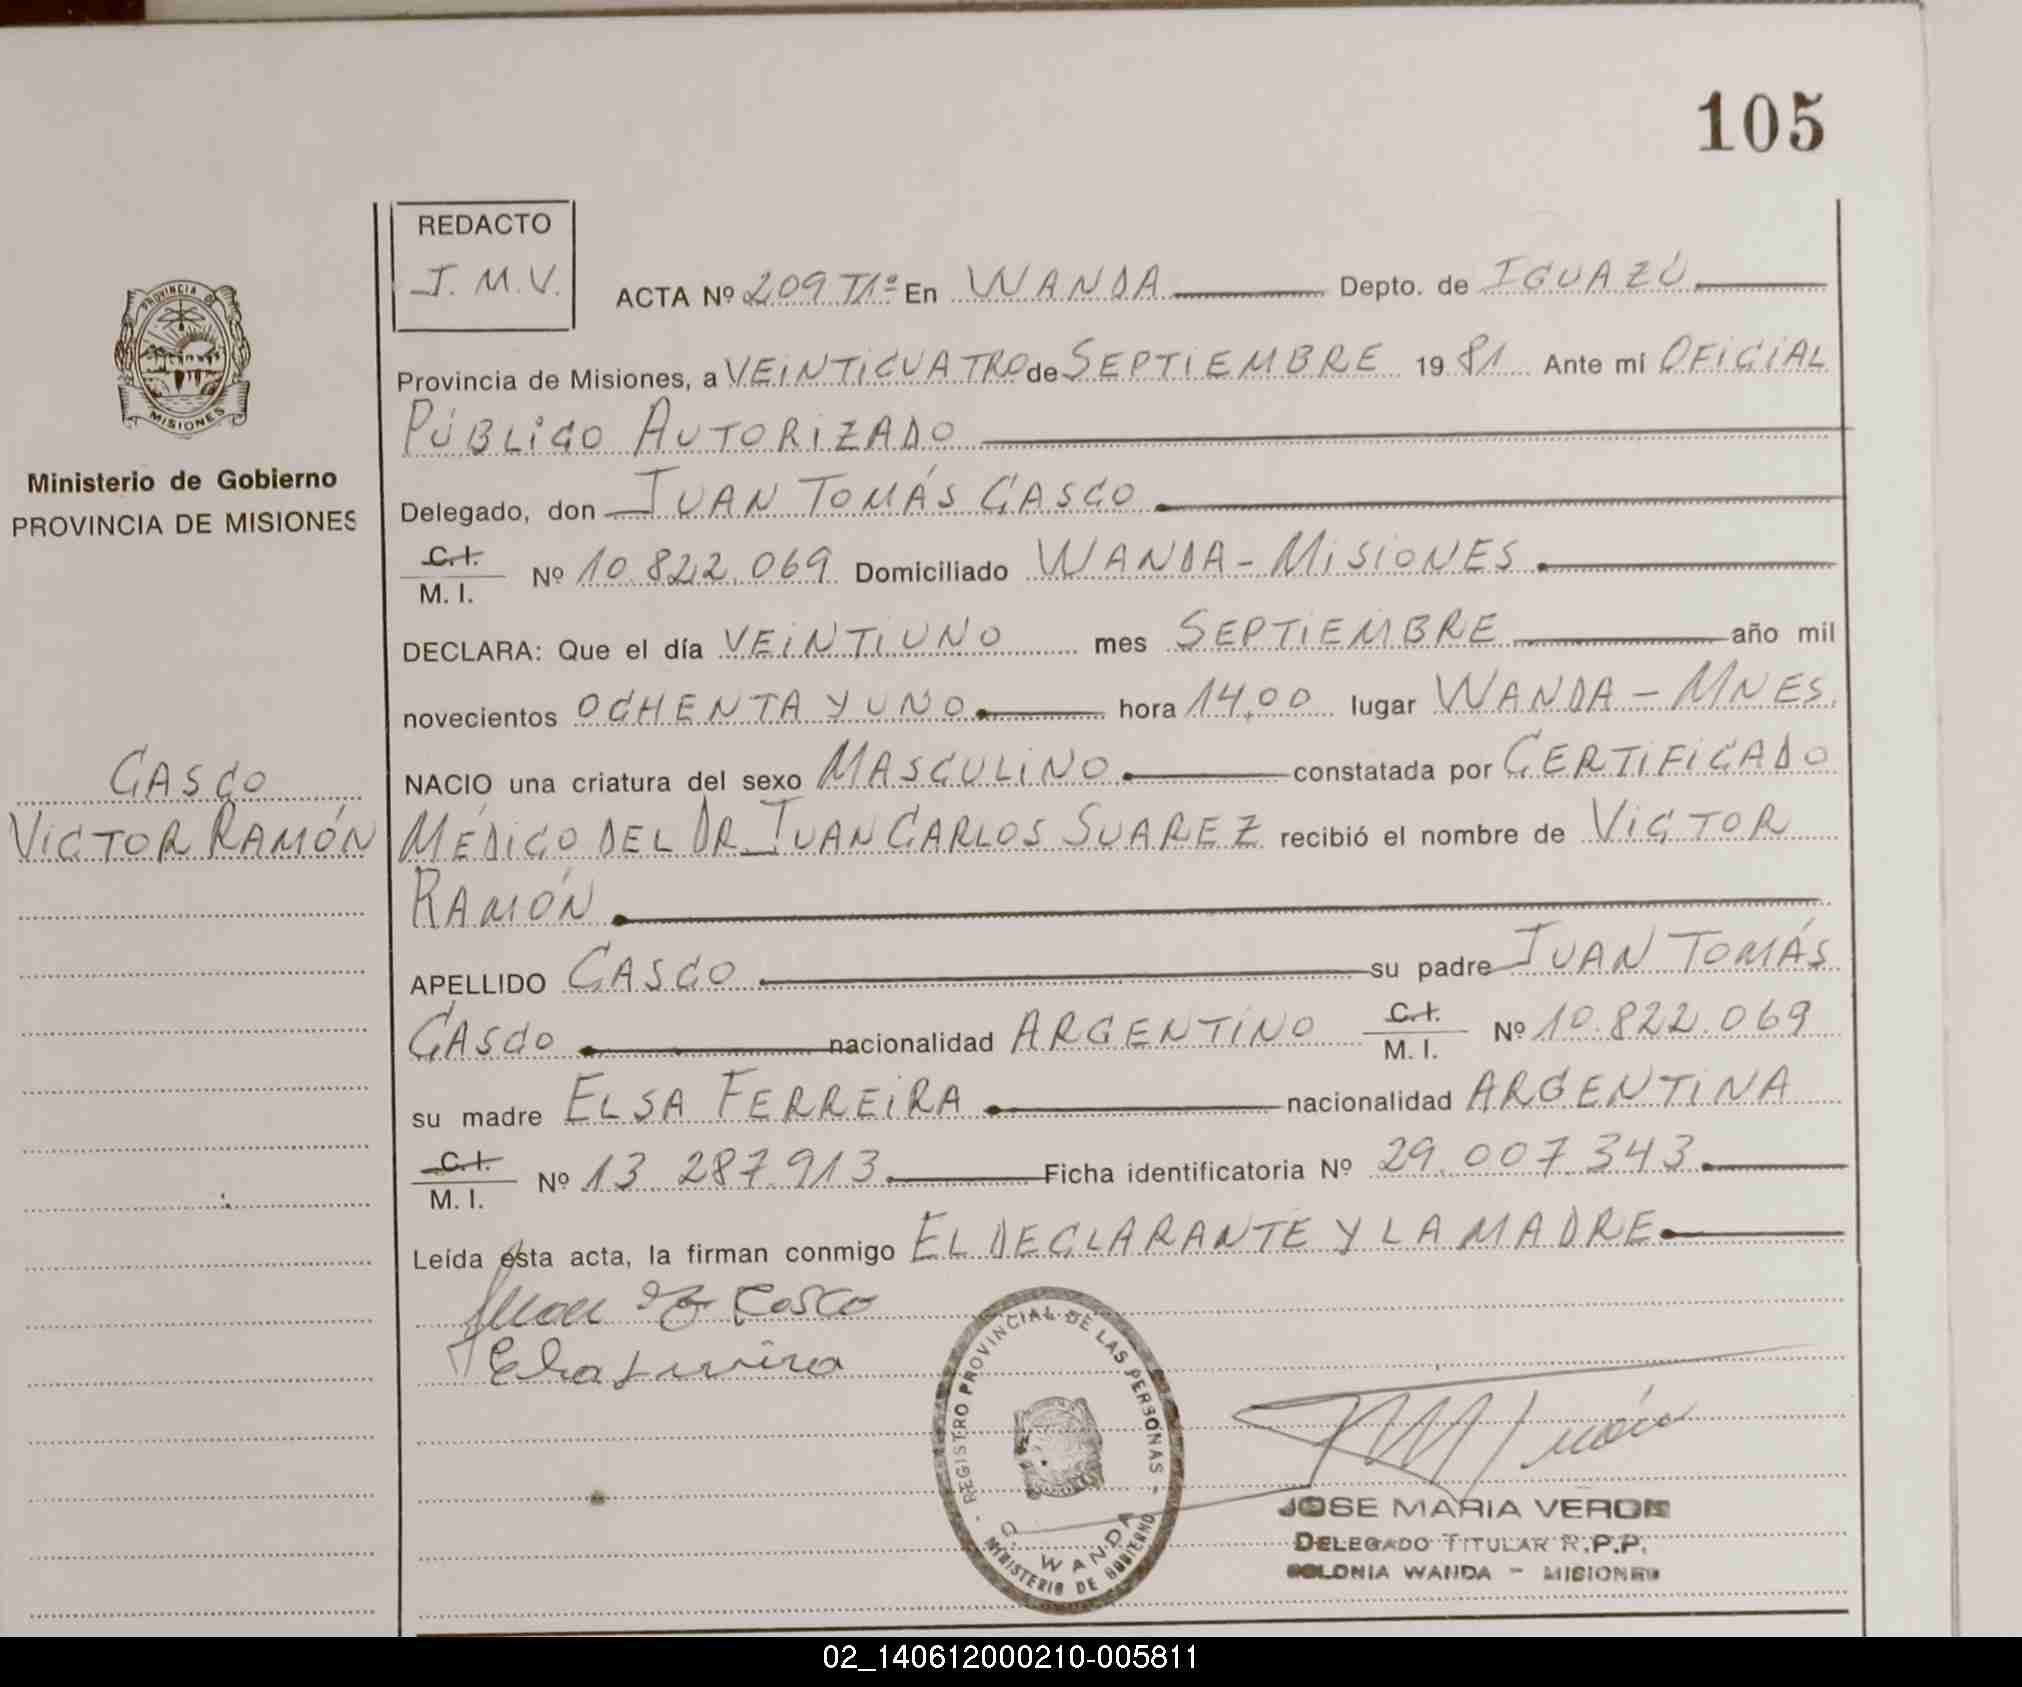 105
REDACTO
J. M. V.
ACTA Nº 209 Tº1º En WANDA Depto. de IGUAZÚ
Provincia de Misiones, a VEINTICUATRO de SEPTIEMBRE 1981 Ante mí OFICIAL
PÚBLICO AUTORIZADO
Delegado, don JUAN TOMÁS CASCO
C.I.
M. I. Nº 10.822.069 Domiciliado WANDA - MISIONES
DECLARA: Que el día VEINTIUNO mes SEPTIEMBRE año mil
novecientos OCHENTA Y UNO hora 14,00 lugar WANDA - MNES.
NACIO una criatura del sexo MASCULINO constatada por CERTIFICADO
MÉDICO DEL DR. JUAN CARLOS SUAREZ recibió el nombre de VICTOR
RAMÓN
APELLIDO CASCO su padre JUAN TOMÁS
CASCO nacionalidad ARGENTINO C.I. M. I. Nº 10.822.069
su madre ELSA FERREIRA nacionalidad ARGENTINA
C.I.
M. I. Nº 13 287.913 Ficha identificatoria Nº 29.007.343
Leída esta acta, la firman conmigo EL DECLARANTE Y LA MADRE
PROVINCIA DE
MISIONES
Ministerio de Gobierno
PROVINCIA DE MISIONES
CASCO
VICTOR RAMÓN
Juan Casco
Elsa Ferreira
- REGISTRO PROVINCIAL DE LAS PERSONAS -
WANDA
MINISTERIO DE GOBIERNO
JOSE MARIA VERON
DELEGADO TITULAR R.P.P.
COLONIA WANDA - MISIONES
02_140612000210-005811